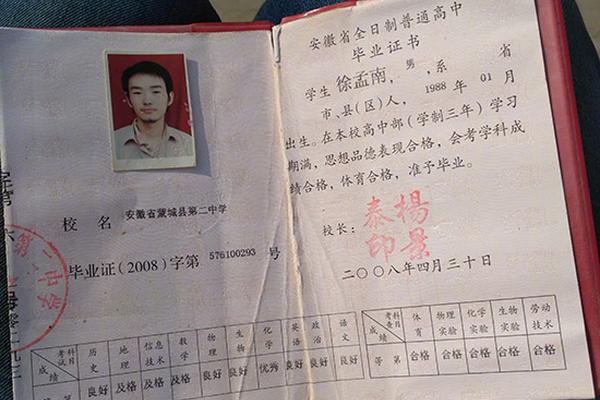 安徽省全日制普通高中
毕业证书
学生 徐孟南，男，系 省
市、县(区)人，1988 年 01 月
出生。在本校高中部(学制三年)学习
期满，思想品德表现合格，会考学科成
绩合格，体育合格，准予毕业。
校长：
楊景泰印
二〇〇八年四月三十日
校 名 安徽省蒙城县第二中学
毕业证(2008)字第 576100293 号
第二中学
考试科目 历史 地理 信息技术 数学 物理 生物 化学 英语 政治 语文
成绩 良好 及格 及格 及格 良好 良好 优秀 良好 良好 良好
考查科目 体育 物理实验 化学实验 生物实验 劳动技术
成绩
等第 合格 合格 合格 合格 合格